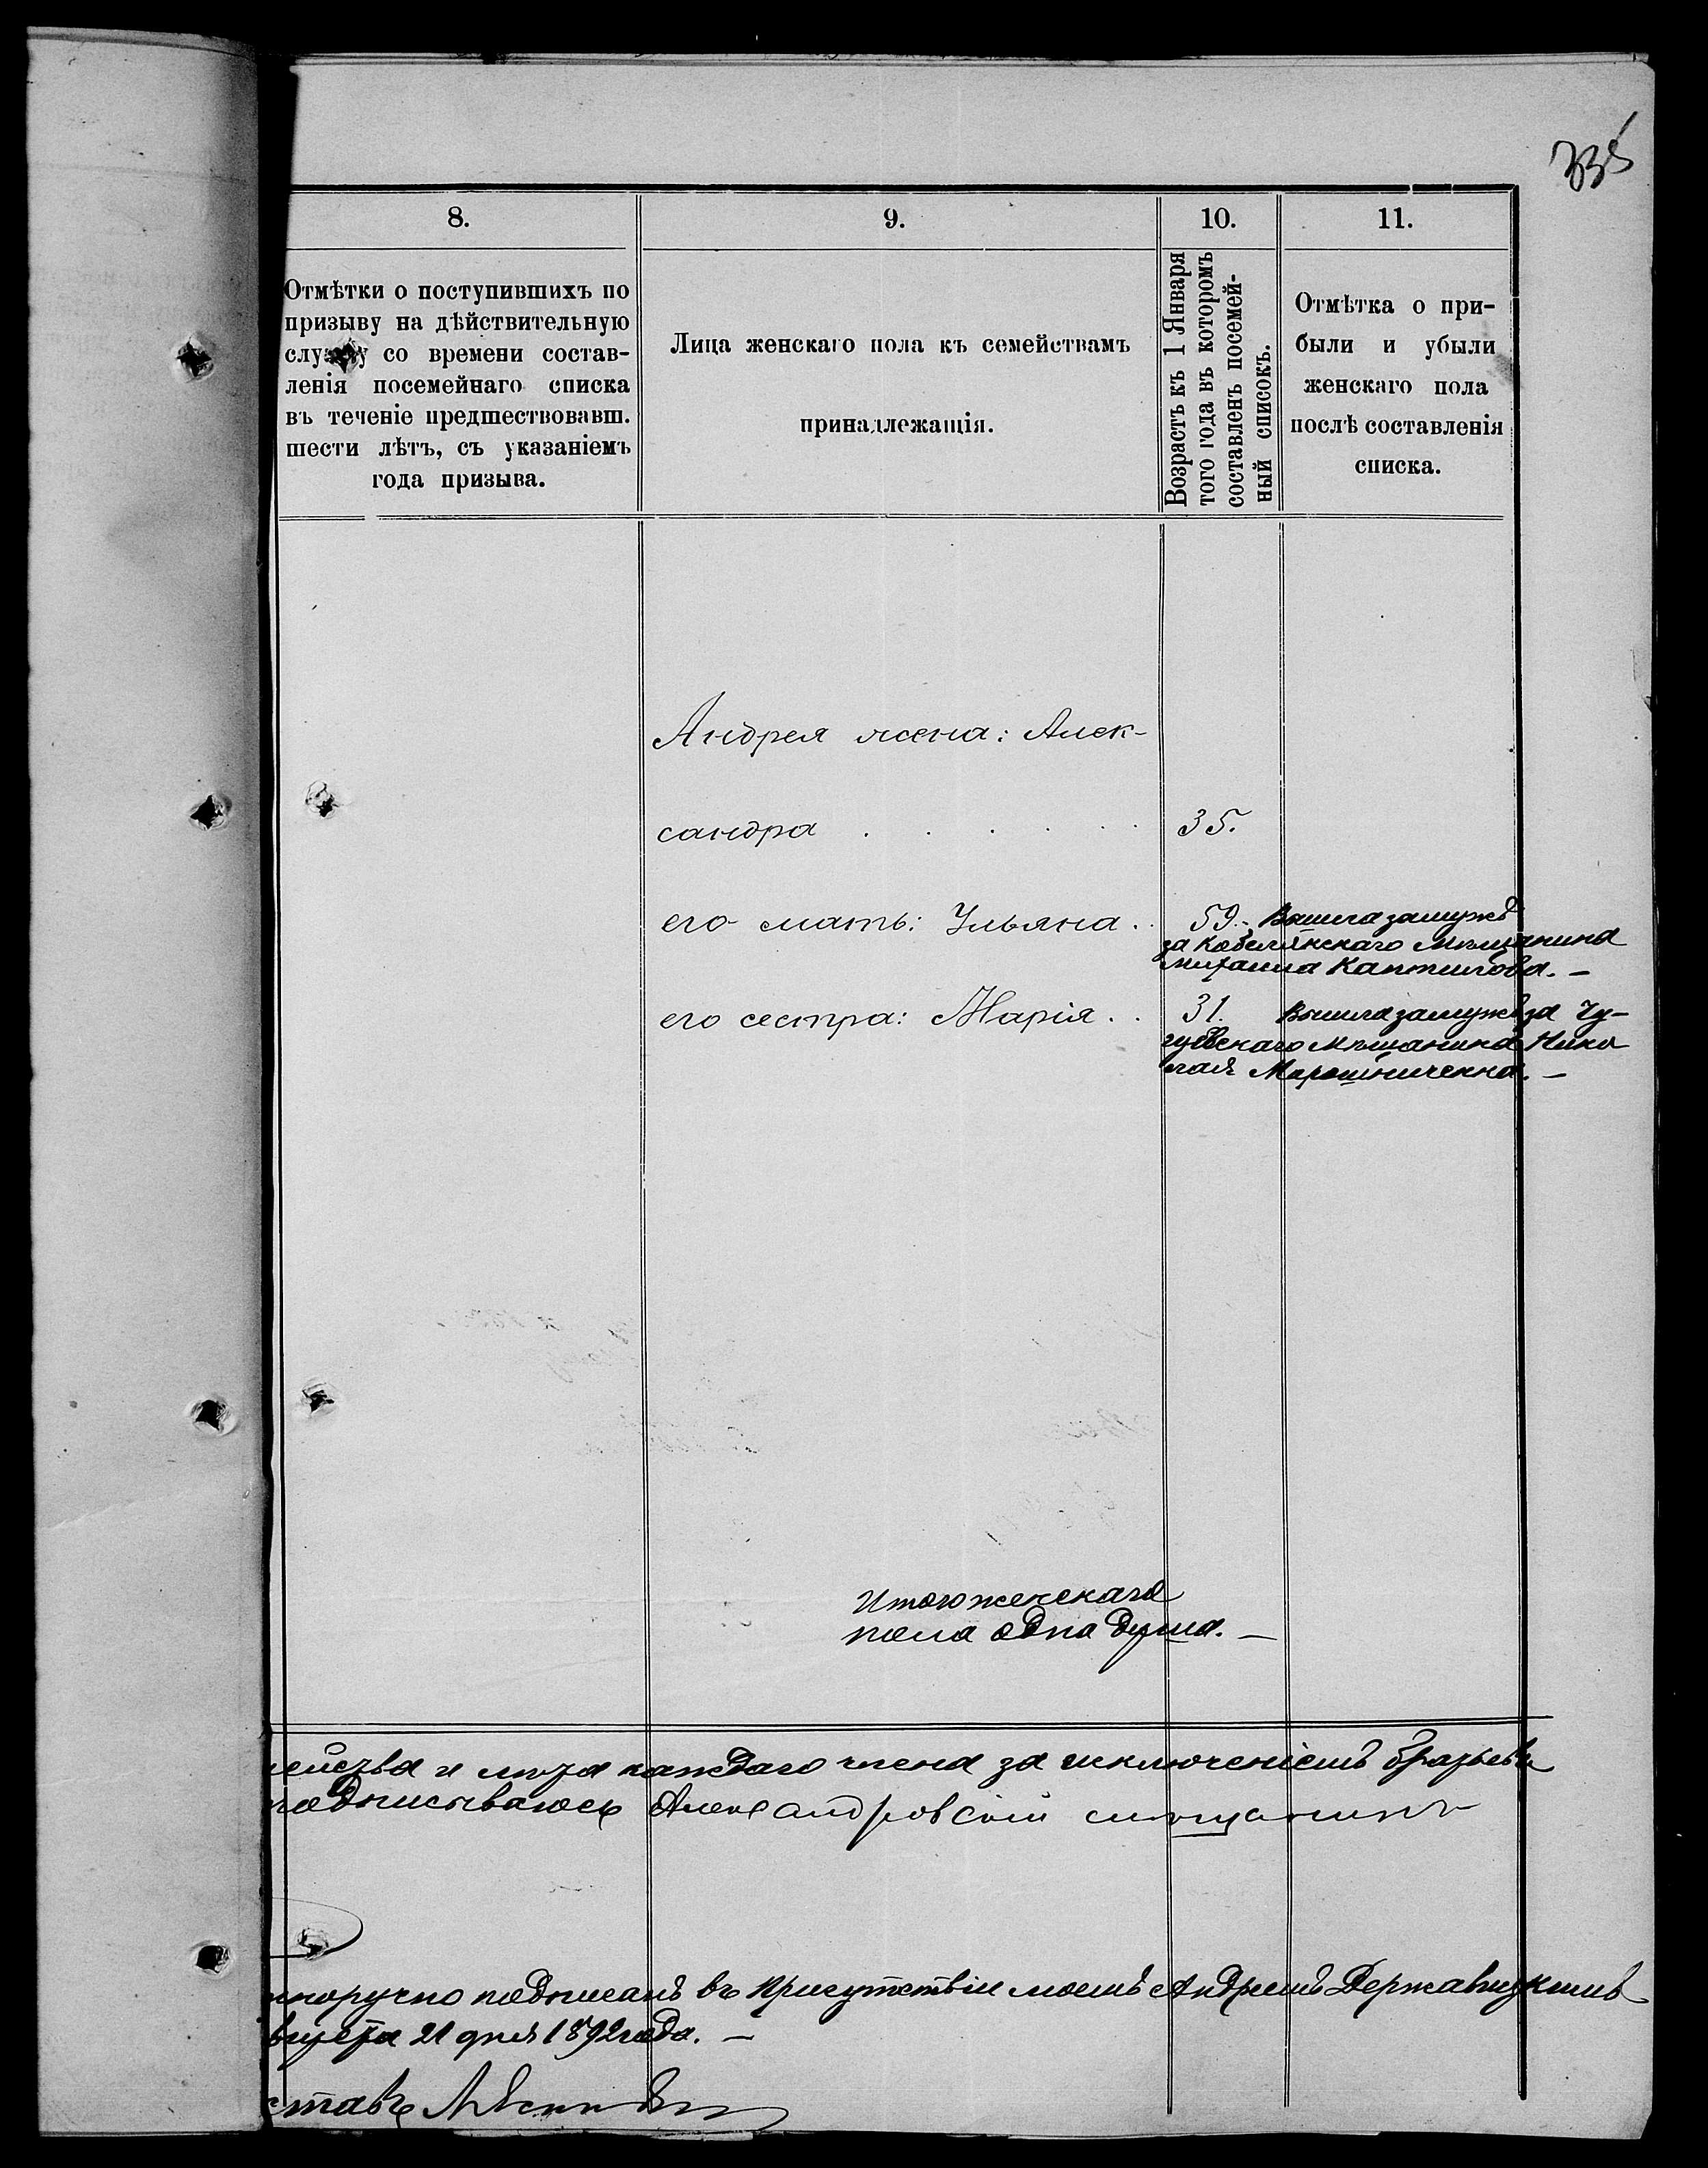 335
8.
9.
10.
11.
Отмѣтки о поступившихъ по
призыву на дѣйствительную
службу со времени состав-
ленія посемейнаго списка
въ теченіе предшествовавш.
шести лѣтъ, съ указаніемъ
года призыва.
Лица женскаго пола къ семействамъ
принадлежащія.
Возрастъ къ 1 Января
того года въ которомъ
составленъ посемей-
ный списокъ.
Отмѣтка о при-
были и убыли
женскаго пола
послѣ составленія
списка.
Андрея жена: Алек-
сандра . . . . . 35.
его мать: Ульяна . . 59. Вышла замужъ
за Кобелякскаго Мѣщанина
Михаила Каптилова. —
его сестра: Марія . . 31. Вышла замужъ за Чу-
гуевскаго Мѣщанина Нико
лая Мирошниченка. —
Итого женскаго
пола одна душа. —
мейства и лѣта каждаго члена за исключеніемъ братьевъ
подписываюсь Александровскій мѣщанинъ
норучно подписанъ въ присутствіи моемъ Андреемъ Державицкимъ
вгуста 21 дня 1892 года. —
ставъ